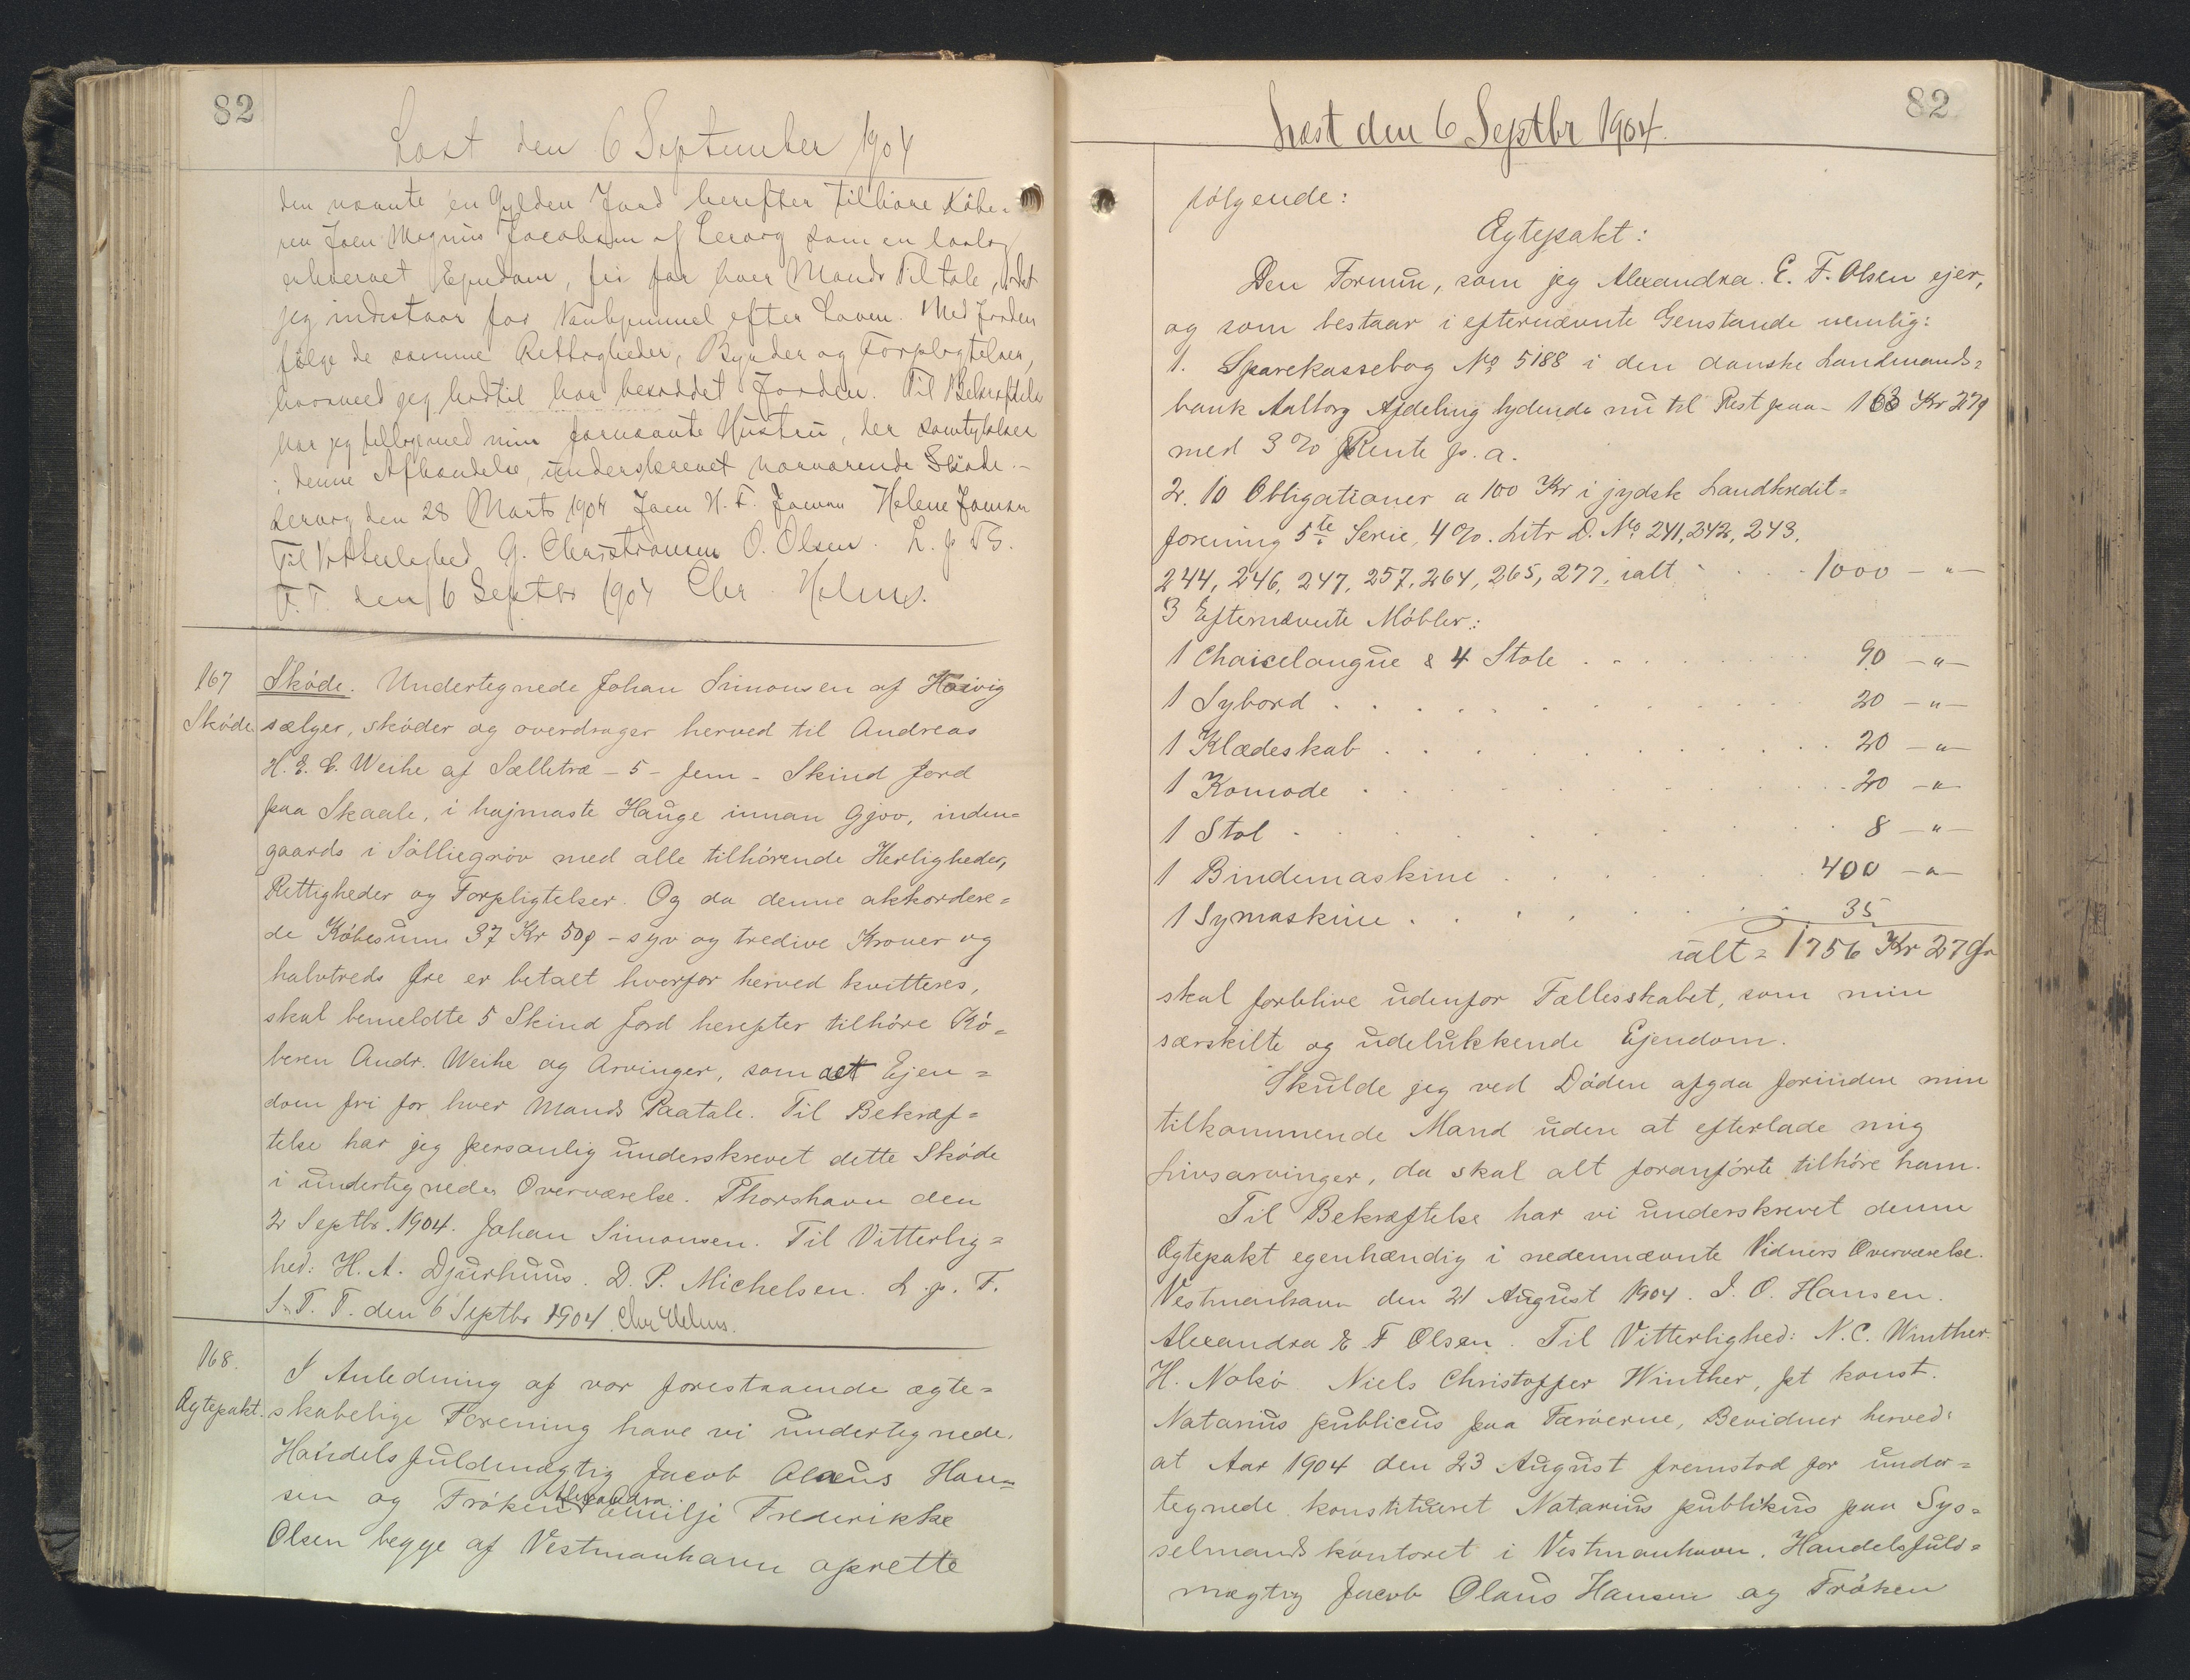 82
Læst den 6 September 1904
den nævnte én Gylden Jord herefter tilhøre Købe-
ren Joen Magnus Jacobsen af Lervig som en lovlig
erhvervet Ejendom, fri for hver Mands Tiltale, idet
jeg indestaar for Vanhjemmel efter Loven. Med Jorden
følge de samme Rettigheder, Byrder og Forpligtelser,
hvormed jeg hidtil har besiddet Jorden. Til Bekræftelse
har jeg tilligemed min fornævnte Hustru, der samtykker
i denne Afhændelse, underskrevet nærværende Skøde.-
Lervig den 28 Marts 1904 Joen H. F. Joensen Helene Joensen
Til Vitterlighed G. Christiansen O. Olsen. L. p. T. S.
F. T. den 6 Septbr 1904 Chr Helms.
167
Skøde.
Skøde. Undertegnede Johan Simonsen af Hósvig
sælger, skøder og overdrager herved til Andreas
H. E. C. Weihe af Sælletræ - 5 - fem - Skind Jord
paa Skaale, i hajmaste Hauge innan Gjov, inden-
gaards i Sólliegröv med alle tilhörende Herligheder,
Rettigheder og Forpligtelser. Og da denne akkordere-
de Köbesum 37 Kr 50ø - syv og tredive Kroner og
halvtreds Øre er betalt hvorfor herved kvitteres,
skal bemeldte 5 Skind Jord herefter tilhöre Kö-
beren Andr. Weihe og Arvinger, som ret Ejen-
dom fri for hver Mands Paatale. Til Bekræf-
telse har jeg personlig underskrevet dette Sköde
i undertegnedes Overværelse. Thorshavn den
2 Septbr. 1904. Johan Simonsen. Til Vitterlig-
hed: H. A. Djurhuus. D. P. Michelsen. L. p. F.
S. T. T. den 6 Septbr 1904. Chr Helms.
168.
Ægtepakt.
I Anledning af vor forestaaende ægte-
skabelige Forening have vi undertegnede.
Handelsfuldmægtig Jacob Olaus Han-
sen og Fröken Alexandra Emilje Frederikke
Olsen begge af Vestmanhavn oprette
82
Læst den 6 Septbr 1904.
følgende:
Ægtepakt:
Den Formue, som jeg Alexandra. E. F. Olsen ejer,
og som bestaar i efternævnte Genstande nemlig:
1. Sparekassebog № 5188 i den danske Landmands-
bank Aalborg Afdeling lydende nu til Rest paa - 163 Kr 27ø
med 3 % Rente p. a.
2. 10 Obligationer a 100 Kr i jydsk Landkredit-
forening 5te Serie, 4 %. Litr D. No 241, 242, 243,
244, 246, 247, 257, 264, 265, 277, ialt . . . 1000 - " -
3 Efternævnte Möbler:
1 Chaiselongue & 4 Stole . . . . 90 - " -
1 Sybord . . . . 20 - " -
1 Klædeskab . . . . 20 - " -
1 Komode . . . . 20 - " -
1 Stol . . . . 8 - " -
1 Bindemaskine . . . . 400 - " -
1 Symaskine . . . . 35
ialt = 1756 Kr 27 Ør
skal forblive udenfor Fællesskabet, som min
særskilte og udelukkende Ejendom.
Skulde jeg ved Döden afgaa forinden min
tilkommende Mand uden at efterlade mig
Livsarvinger, da skal alt foranförte tilhöre ham.
Til Bekræftelse har vi underskrevet denne
Ægtepakt egenhændig i nedennævnte Vidners Overværelse.
Vestmanhavn den 21 August 1904. J. O. Hansen.
Alexandra E F Olsen. Til Vitterlighed: N. C. Winther.
H. Nolsö. Niels Christoffer Winther, pt konst.
Notarius publicus paa Færöerne, Bevidner herved:
at Aar 1904 den 23 August fremstod for under-
tegnede konstitueret Notarius publikus paa Sys-
selmandskontoret i Vestmanhavn, Handelsfuld-
mægtig Jacob Olaus Hansen og Fröken